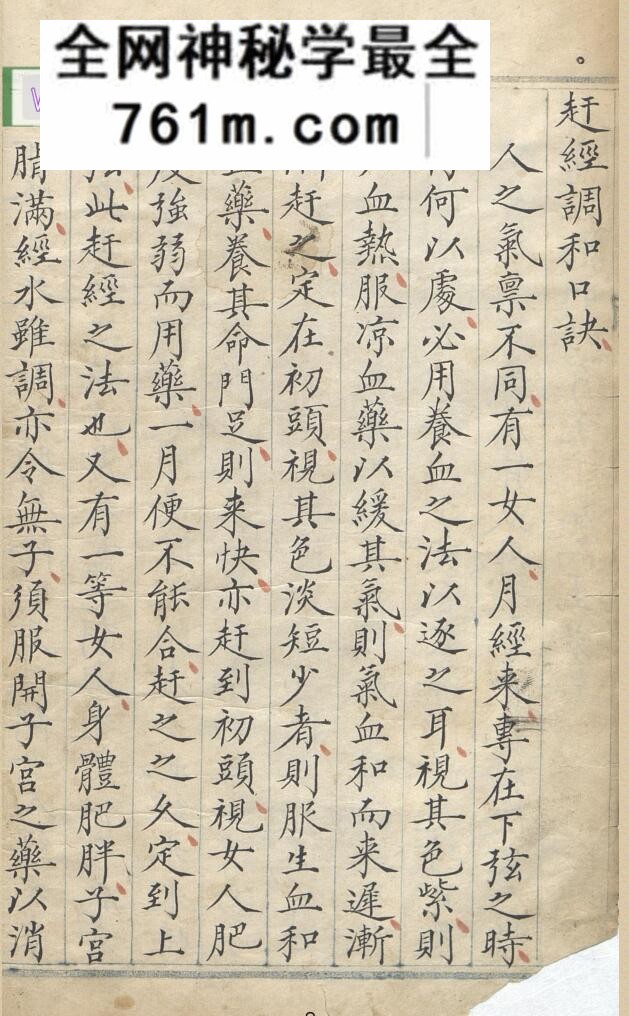 全网神秘学最全
761m.com
赶經調和口訣
人之氣禀不同有一女人月經来專在下弦之時
何以處必用養血之法以逐之耳視其色紫則
血熱服凉血藥以緩其氣則氣血和而来遲漸
赶之定在初頭視其色淡短少者則服生血和
藥養其命門足則来快亦赶到初頭視女人肥
強弱而用藥一月便不能合赶之之久定到上
此赶經之法也又有一等女人身體肥胖子宮
腈滿經水雖調亦令無子須服開子宮之藥以消